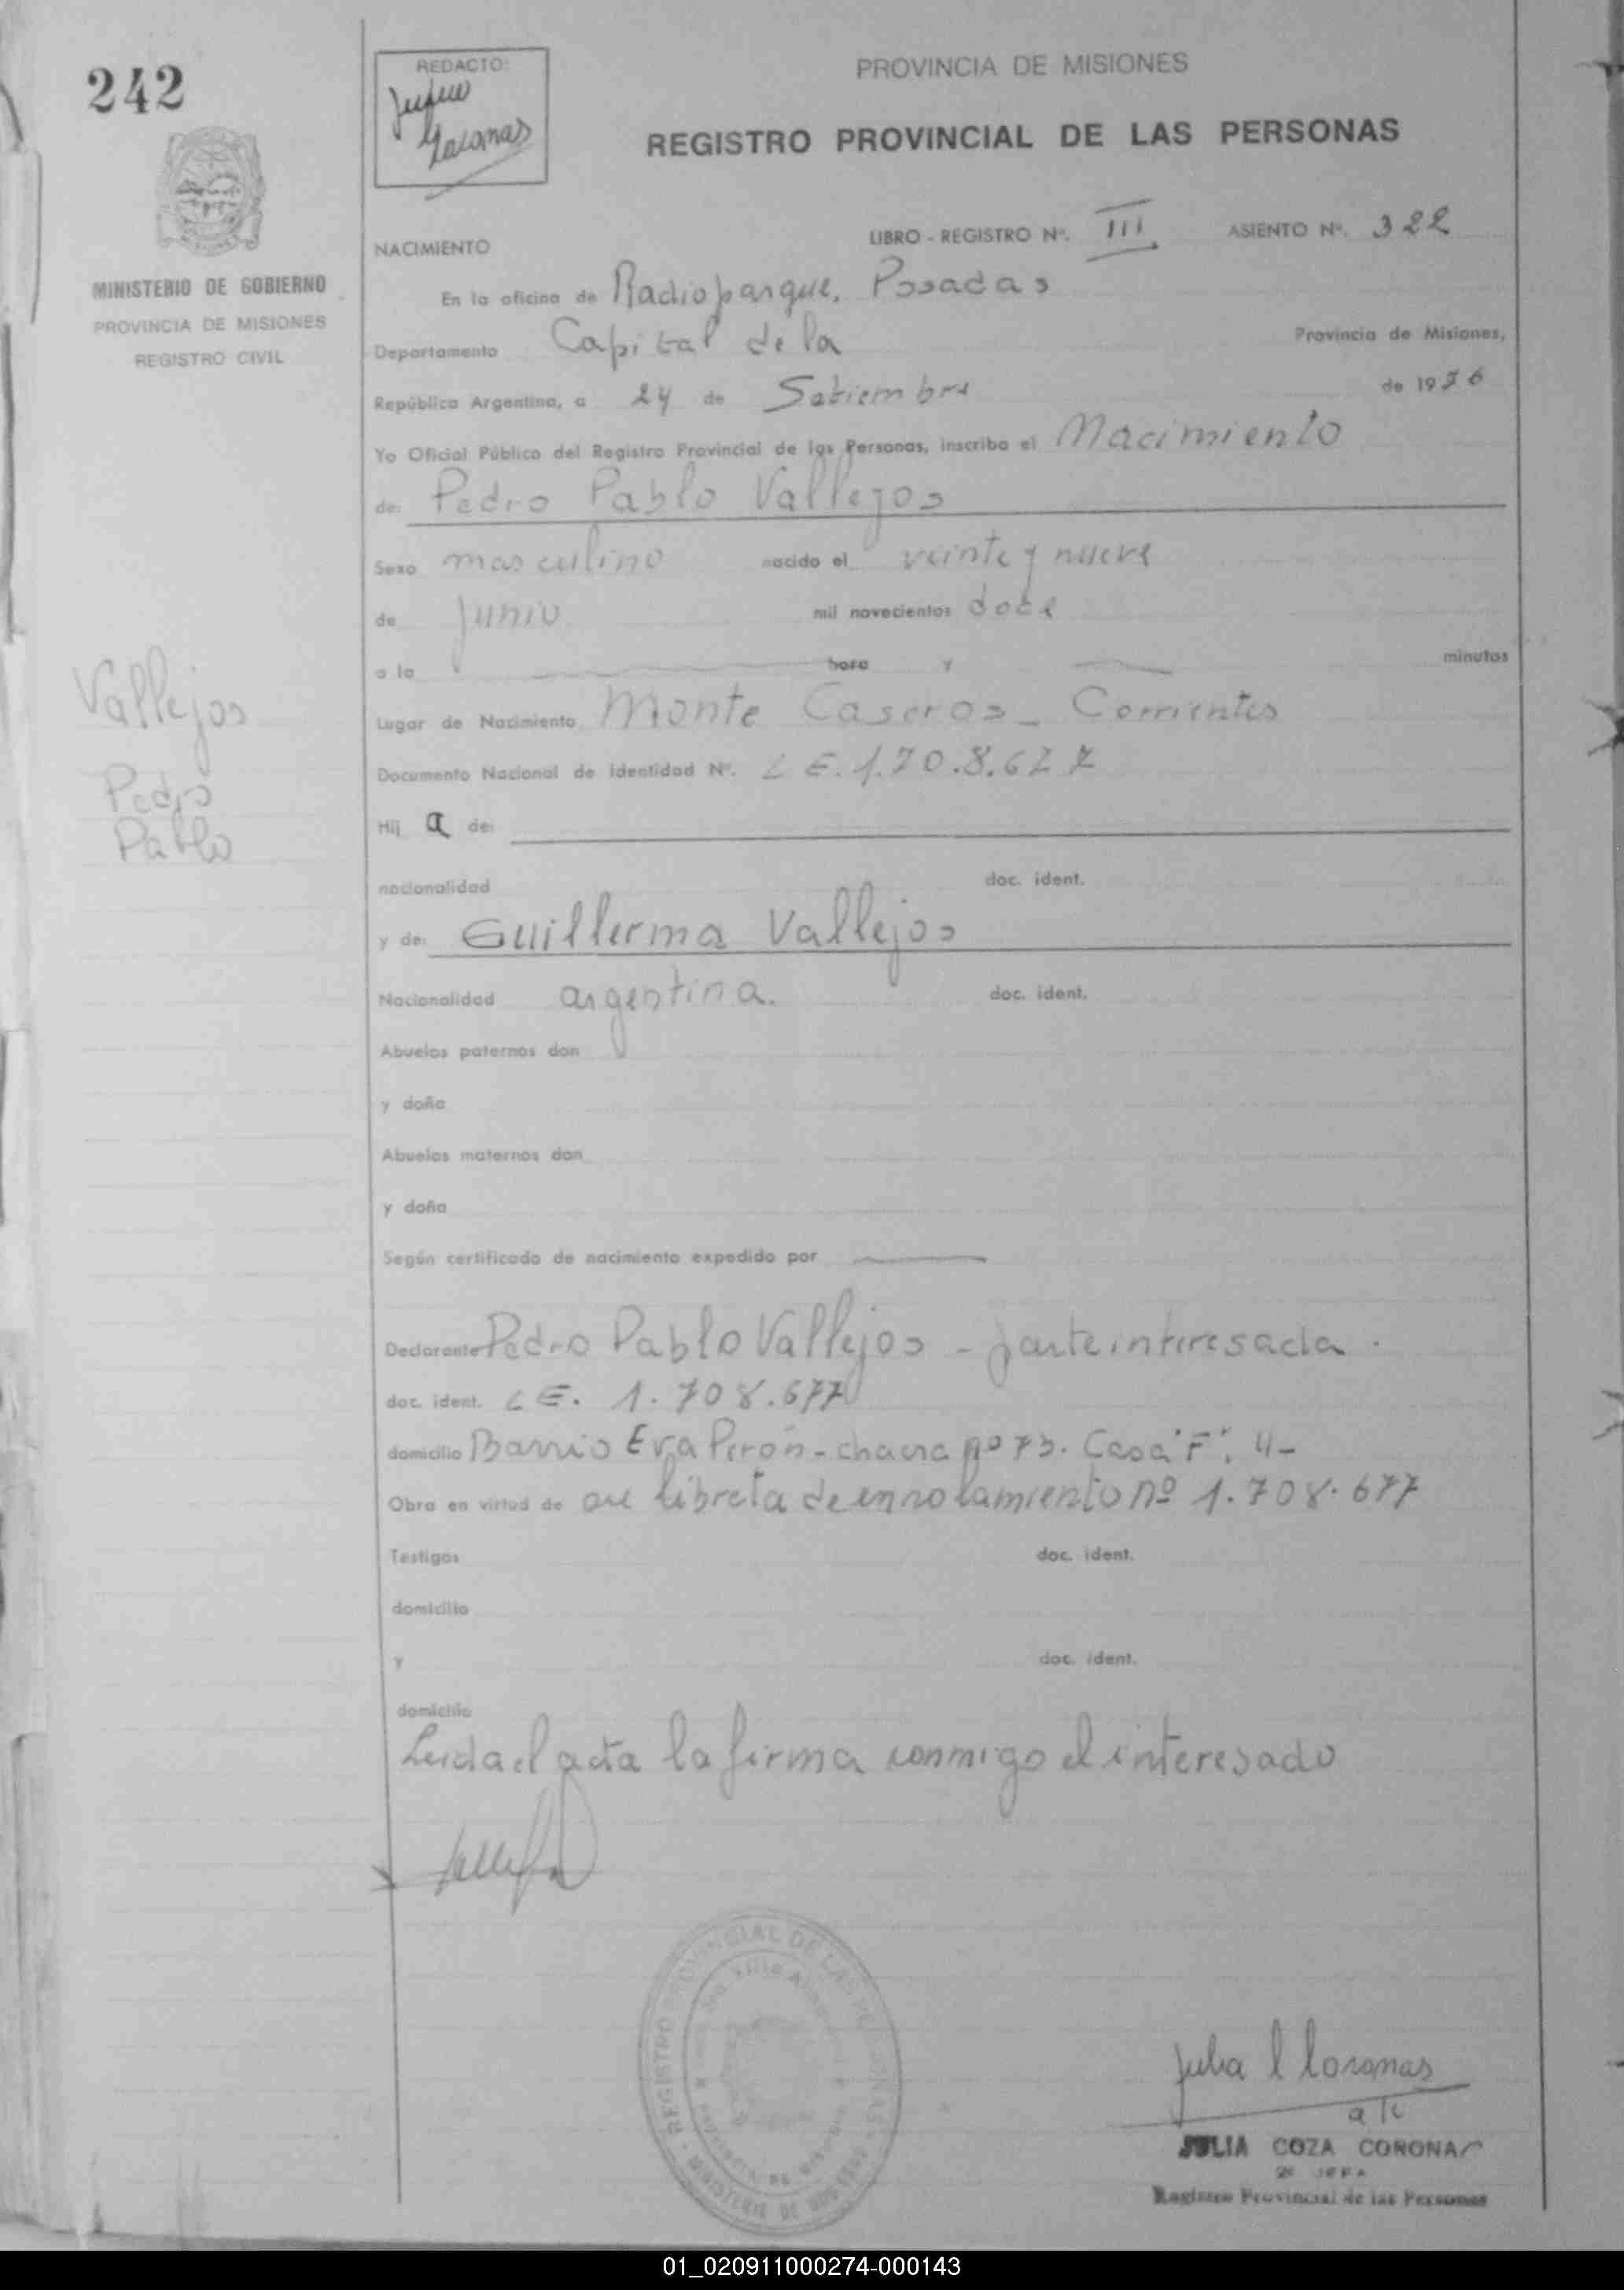 242
REDACTO:
PROVINCIA DE MISIONES
REGISTRO PROVINCIAL DE LAS PERSONAS
MINISTERIO DE GOBIERNO
PROVINCIA DE MISIONES
REGISTRO CIVIL
NACIMIENTO
LIBRO - REGISTRO Nº. III
ASIENTO Nº. 322
En la oficina de Radioparque, Posadas
Departamento Capital de la Provincia de Misiones,
República Argentina, a 24 de Setiembre de 1976
Yo Oficial Público del Registro Provincial de las Personas, inscribo el Nacimiento
de: Pedro Pablo Vallejos
Sexo masculino nacido el veinte y nueve
de Junio mil novecientos doce
a la hora y minutos
Vallejos
Pedro
Pablo
Lugar de Nacimiento Monte Caseros - Corrientes
Documento Nacional de Identidad Nº. LE. 1.708.677
Hij a de:
nacionalidad doc. ident.
y de: Guillerma Vallejos
Nacionalidad argentina. doc. ident.
Abuelos paternos don
y doña
Abuelos maternos don
y doña
Según certificado de nacimiento expedido por
Declarante Pedro Pablo Vallejos - parte interesada.
doc. ident. LE. 1.708.677
domicilio Barrio Eva Perón - chacra nº 73. Casa "F", 4-
Obra en virtud de su libreta de enrolamiento nº 1.708.677
Testigos doc. ident.
domicilio
y doc. ident.
domicilio
Leida el acta la firma conmigo el interesado
REGISTRO PROVINCIAL DE LAS PERSONAS
MINISTERIO DE GOBIERNO
JULIA COZA CORONAS
2º JEFA
Registro Provincial de las Personas
01_020911000274-000143